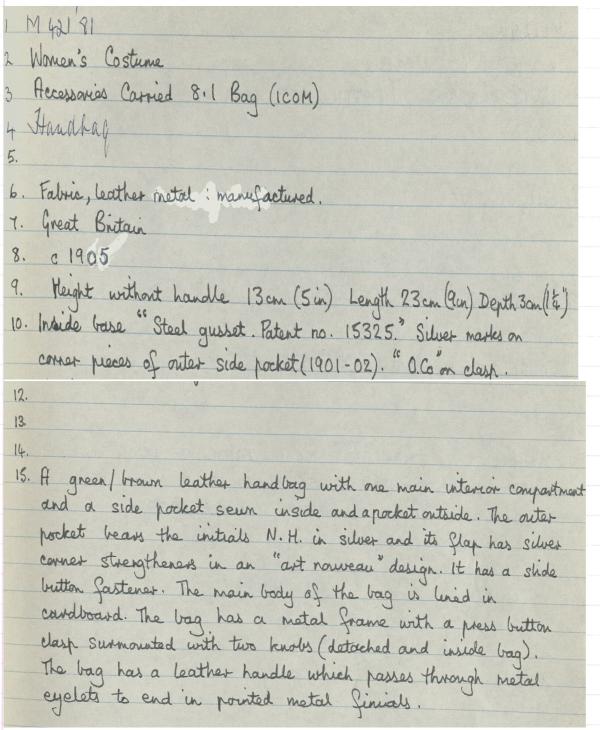 1 M 421'81
2 Women's Costume
3 Accessories Carried 8.1 Bag (ICOM)
4 Handbag
5.
6. Fabric, leather metal : manufactured.
7. Great Britain
8. c 1905
9. Height without handle 13cm (5in) Length 23cm (9in) Depth 3cm (1¼")
10. Inside base "Steel gusset. Patent no. 15325." Silver marks on
corner pieces of outer side pocket (1901-02). "O.Co" on clasp.
12.
13
14.
15. A green/brown leather handbag with one main interior compartment
and a side pocket sewn inside and a pocket outside. The outer
pocket bears the initials N.H. in silver and its flap has silver
corner strengtheners in an "art nouveau" design. It has a slide
button fastener. The main body of the bag is lined in
cardboard. The bag has a metal frame with a press button
clasp surmounted with two knobs (detached and inside bag).
The bag has a leather handle which passes through metal
eyelets to end in pointed metal finials.